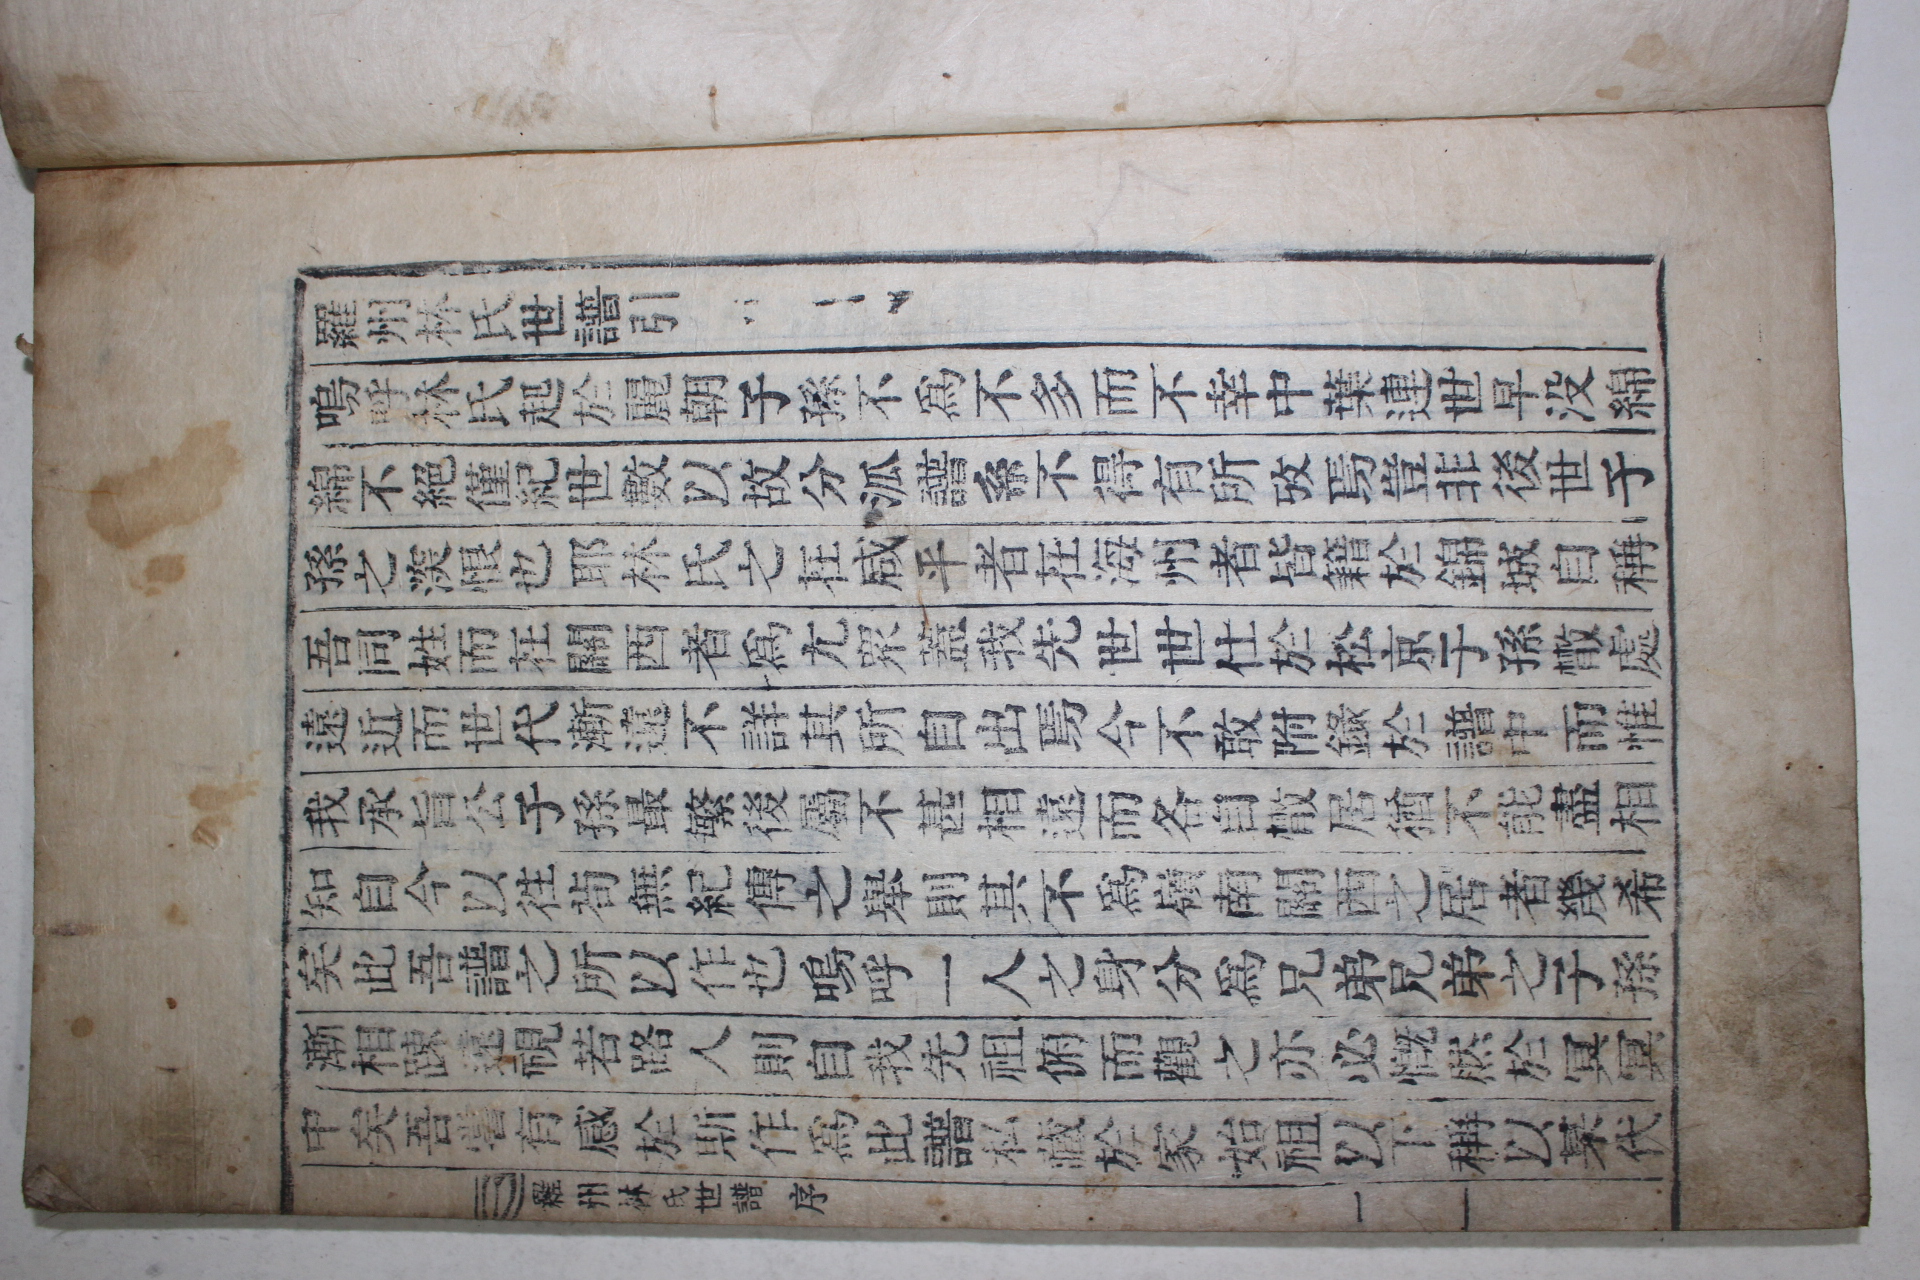 羅州林氏世譜引
嗚呼林氏起於麗朝子孫不爲不多而不幸中葉連世早沒綿
綿不絕僅紀世數以故分派譜系不得有所攷焉豈非後世子
孫之深恨也耶林氏之在咸平者在海州者皆籍於錦城自稱
吾同姓而在關西者爲尤衆蓋我先世世仕於松京子孫散處
遠近而世代漸遠不詳其所自出焉今不敢附錄於譜中而惟
我承旨公子孫最繁後屬不甚相遠而各自散居猶不能盡相
知自今以往尙無紀傳之舉則其不爲嶺南關西之居者幾希
矣此吾譜之所以作也嗚呼一人之身分爲兄弟兄弟之子孫
漸相踈遠視若路人則自我先祖俯而觀之亦必慨然於冥冥
中矣吾嘗有感於斯作爲此譜私藏於家始祖以下稱以某代
羅州林氏世譜 序 一